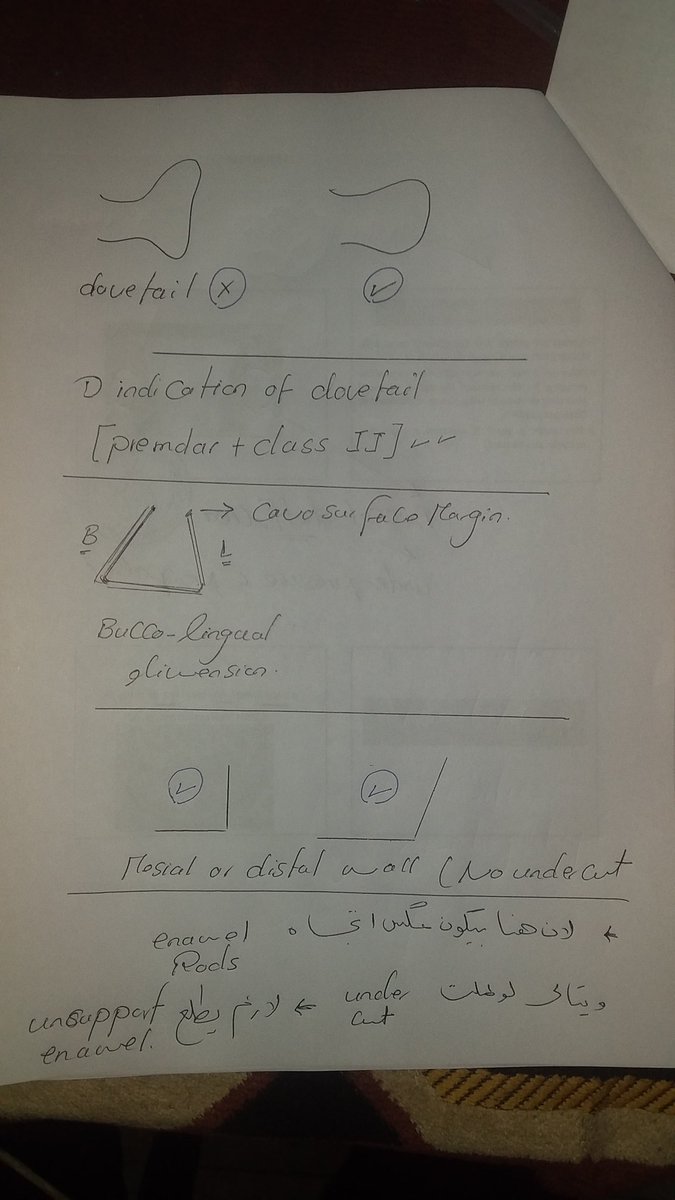 dovetail ⓧ ✓
① indication of dovetail
[premolar + class II] ✓✓
→ Cavosurface Margin.
B L
Bucco-lingual
dimension.
✓ ✓
Mesial or distal wall (No undercut
← لان هنا بيكون عكس اتجاه enamel
Rods
وبتالى لو عملت under cut ← لازم يطلع unsupport
enamel.